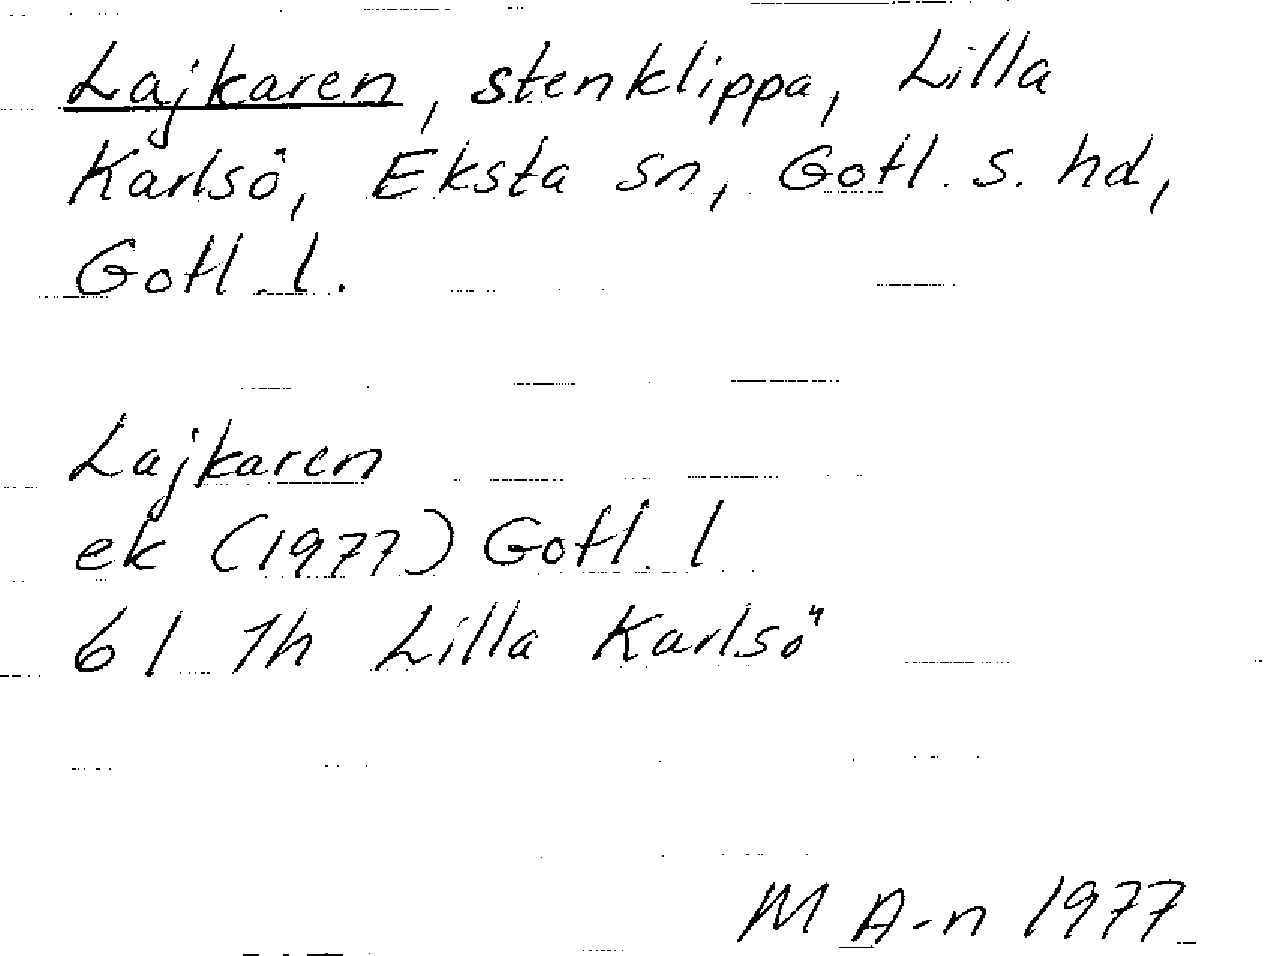 Lajkaren, stenklippa, Lilla
Karlsö, Eksta sn, Gotl. s. hd,
Gotl. l.
Lajkaren
ek (1977) Gotl. l
6 I 7h Lilla Karlsö
M A-n 1977